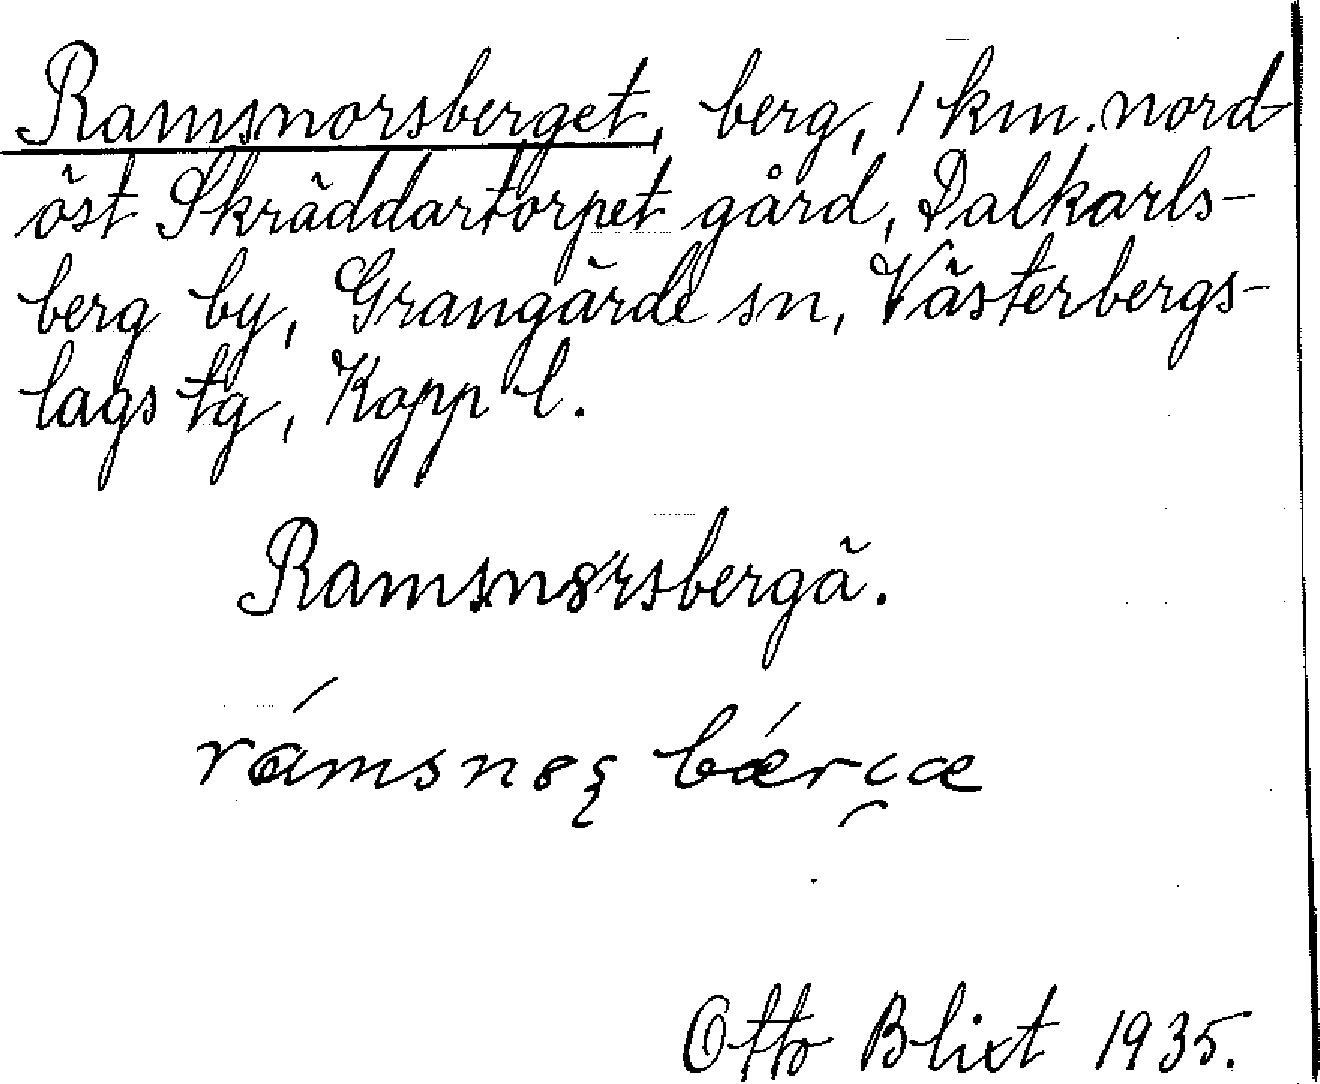 Ramsnorsberget, berg, 1 km. nord-
öst Skräddartorpet gård, Dalkarls-
berg by, Grangärde sn, Västerbergs-
lags tg, Kopp l.
Ramsnȣrsbergä.
Otto Blixt 1935.